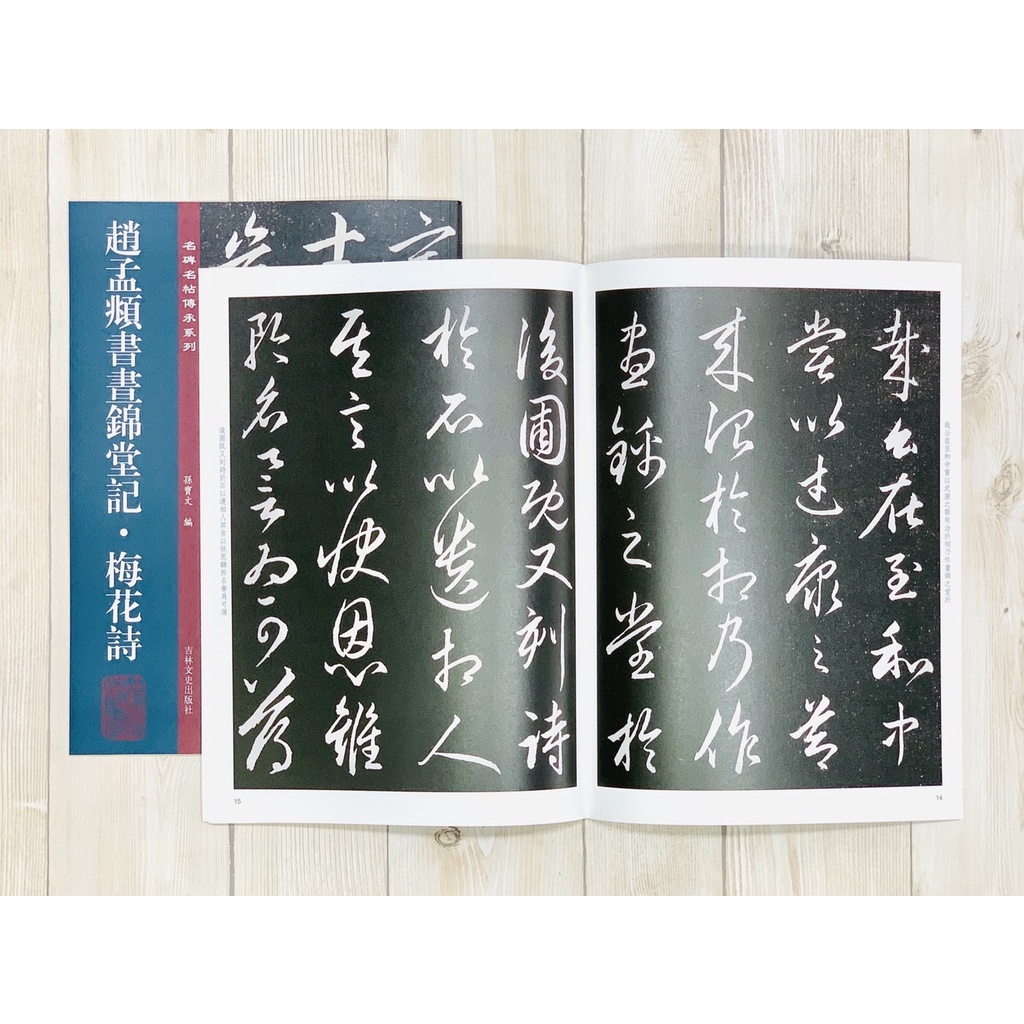 趙孟頫書晝錦堂記・梅花詩
名碑名帖傳承系列
孫寶文 編
吉林文史出版社
哉公在至和中
嘗以武康之節
來治於相乃作
晝錦之堂於
哉公在至和中嘗以武康之節來治於相乃作晝錦之堂於
14
後圃既又刻詩
於石以遺相人
其言以快恩讎
矜名譽為可薄
後圃既又刻詩於石以遺相人其言以快恩讎矜名譽為可薄
15